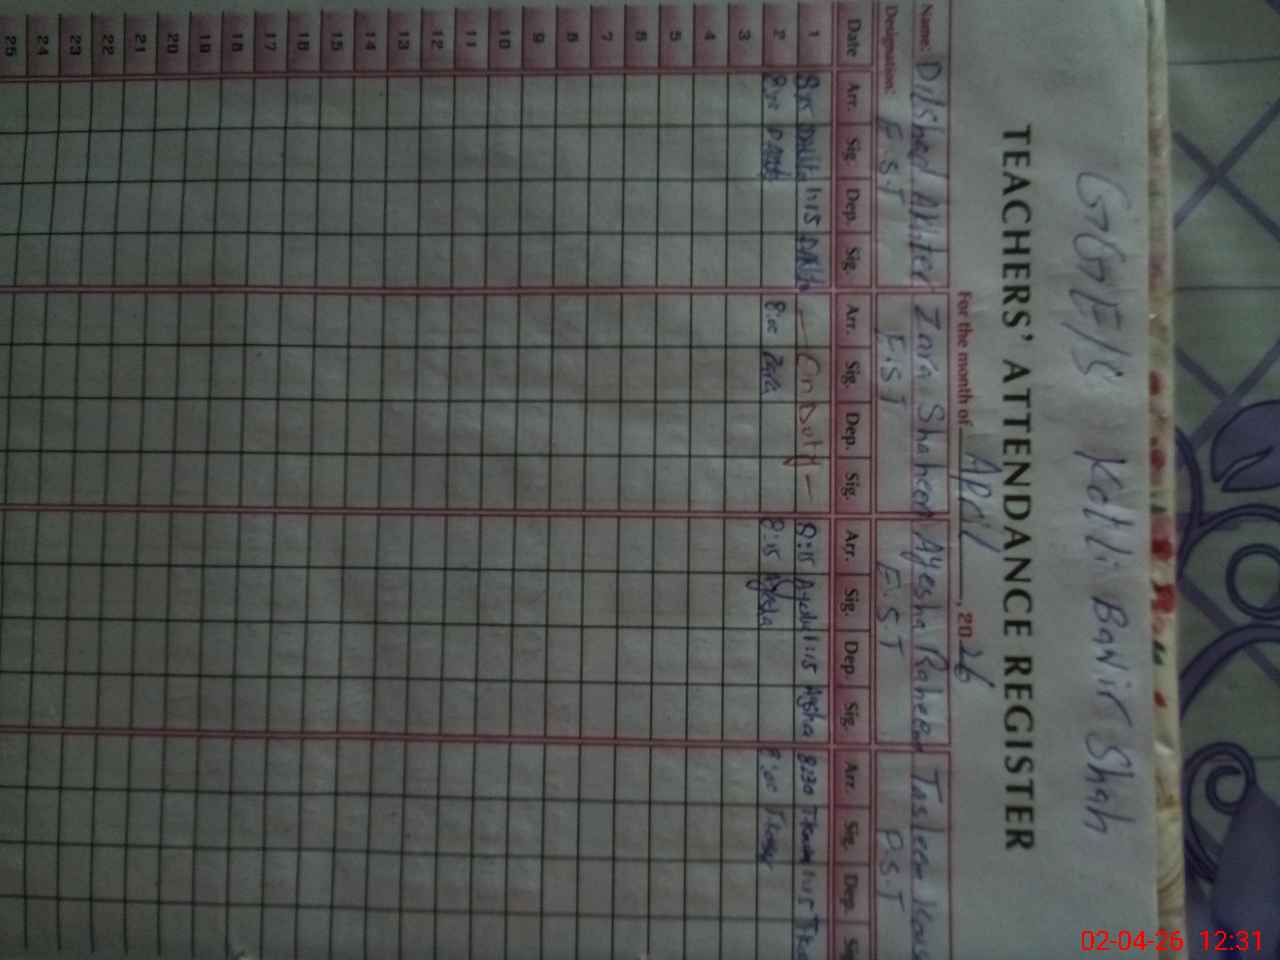 GGE/S Kotli Bawir Shah
TEACHERS' ATTENDANCE REGISTER
For the month of April, 2026
Name: Dilshed Akhter Zara Shaheen Ayesha Raheem Tasleem
Designation: E.S.T E.S.T E.S.T P.S.T
Date Arr. Sig. Dep. Sig. Arr. Sig. Dep. Sig. Arr. Sig. Dep. Sig. Arr. Sig. Dep.
1 8:15 1:15 — On Duty — 8:15 1:15 Aysha 8:30 1:15
2 8:00 Zara 8:15 8:00
3
4
5
6
7
8
9
10
11
12
13
14
15
16
17
18
19
20
21
22
23
24
25
02-04-26 12:31